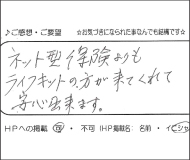 ♪ご感想・ご要望 ☆お気づきになられた事なんでも結構です☆
ネット型保険よりも
ライフキットの方が来てくれて
安心出来ます。
HPへの掲載 可 ・ 不可 (HP掲載名: 名前 ・ イニシャ